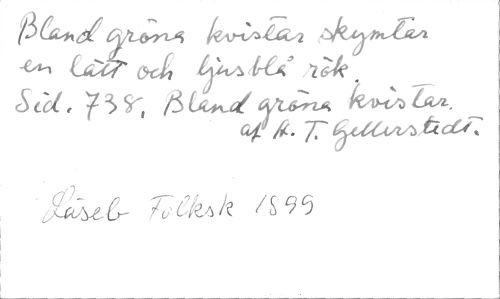 Bland gröna kvistar skymtar
en lätt och ljusblå rök.
Sid. 738. Bland gröna kvistar.
af A. T. Gellerstedt.
Läseb Folksk 1899